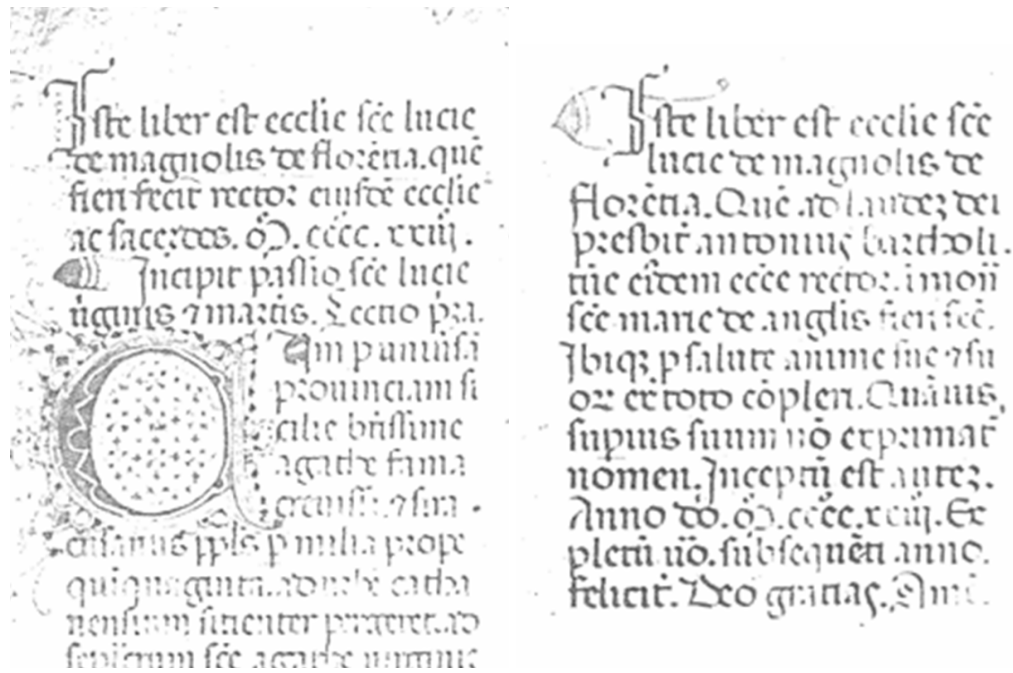 Iste liber est ecclīe scē lucie
de magnolis de florētia. quē
fieri fecit rector eiusdē ecclīe
ac sacerdos. ꝏ. cccc. xxiii.
Incipit passio scē lucie
ṽginis ⁊ martis. Lectio pra.
Cum p uniuͥsā
prouinciam si
cilie btissime
agathe fama
crebuiss;
siracusanus ppls p milia prope
quīquaginta. ad urbē catha
nensium sitienter pergeret. ad
sepulcrum scē agathe uirginis
Iste liber est ecclīe scē
lucie de magnolis de
florētia. Quē ad laudeꝫ dei
presbit̄ antonius bartholi.
tūc eīdem eccē rector. i moñ
scē marie de anglis fieri fēc.
Ibiqꝫ p salute anime sue ⁊ su
oꝝ ex toto cōpleri. Quāuis,
supius suum nō exprimat̄
nomen. Inceptū est auteꝫ.
Anno dō. ꝏ. cccc. xxiii. Ex
pletū ūo. subsequēti anno.
feliciт̄. Deo gratias. Amē.